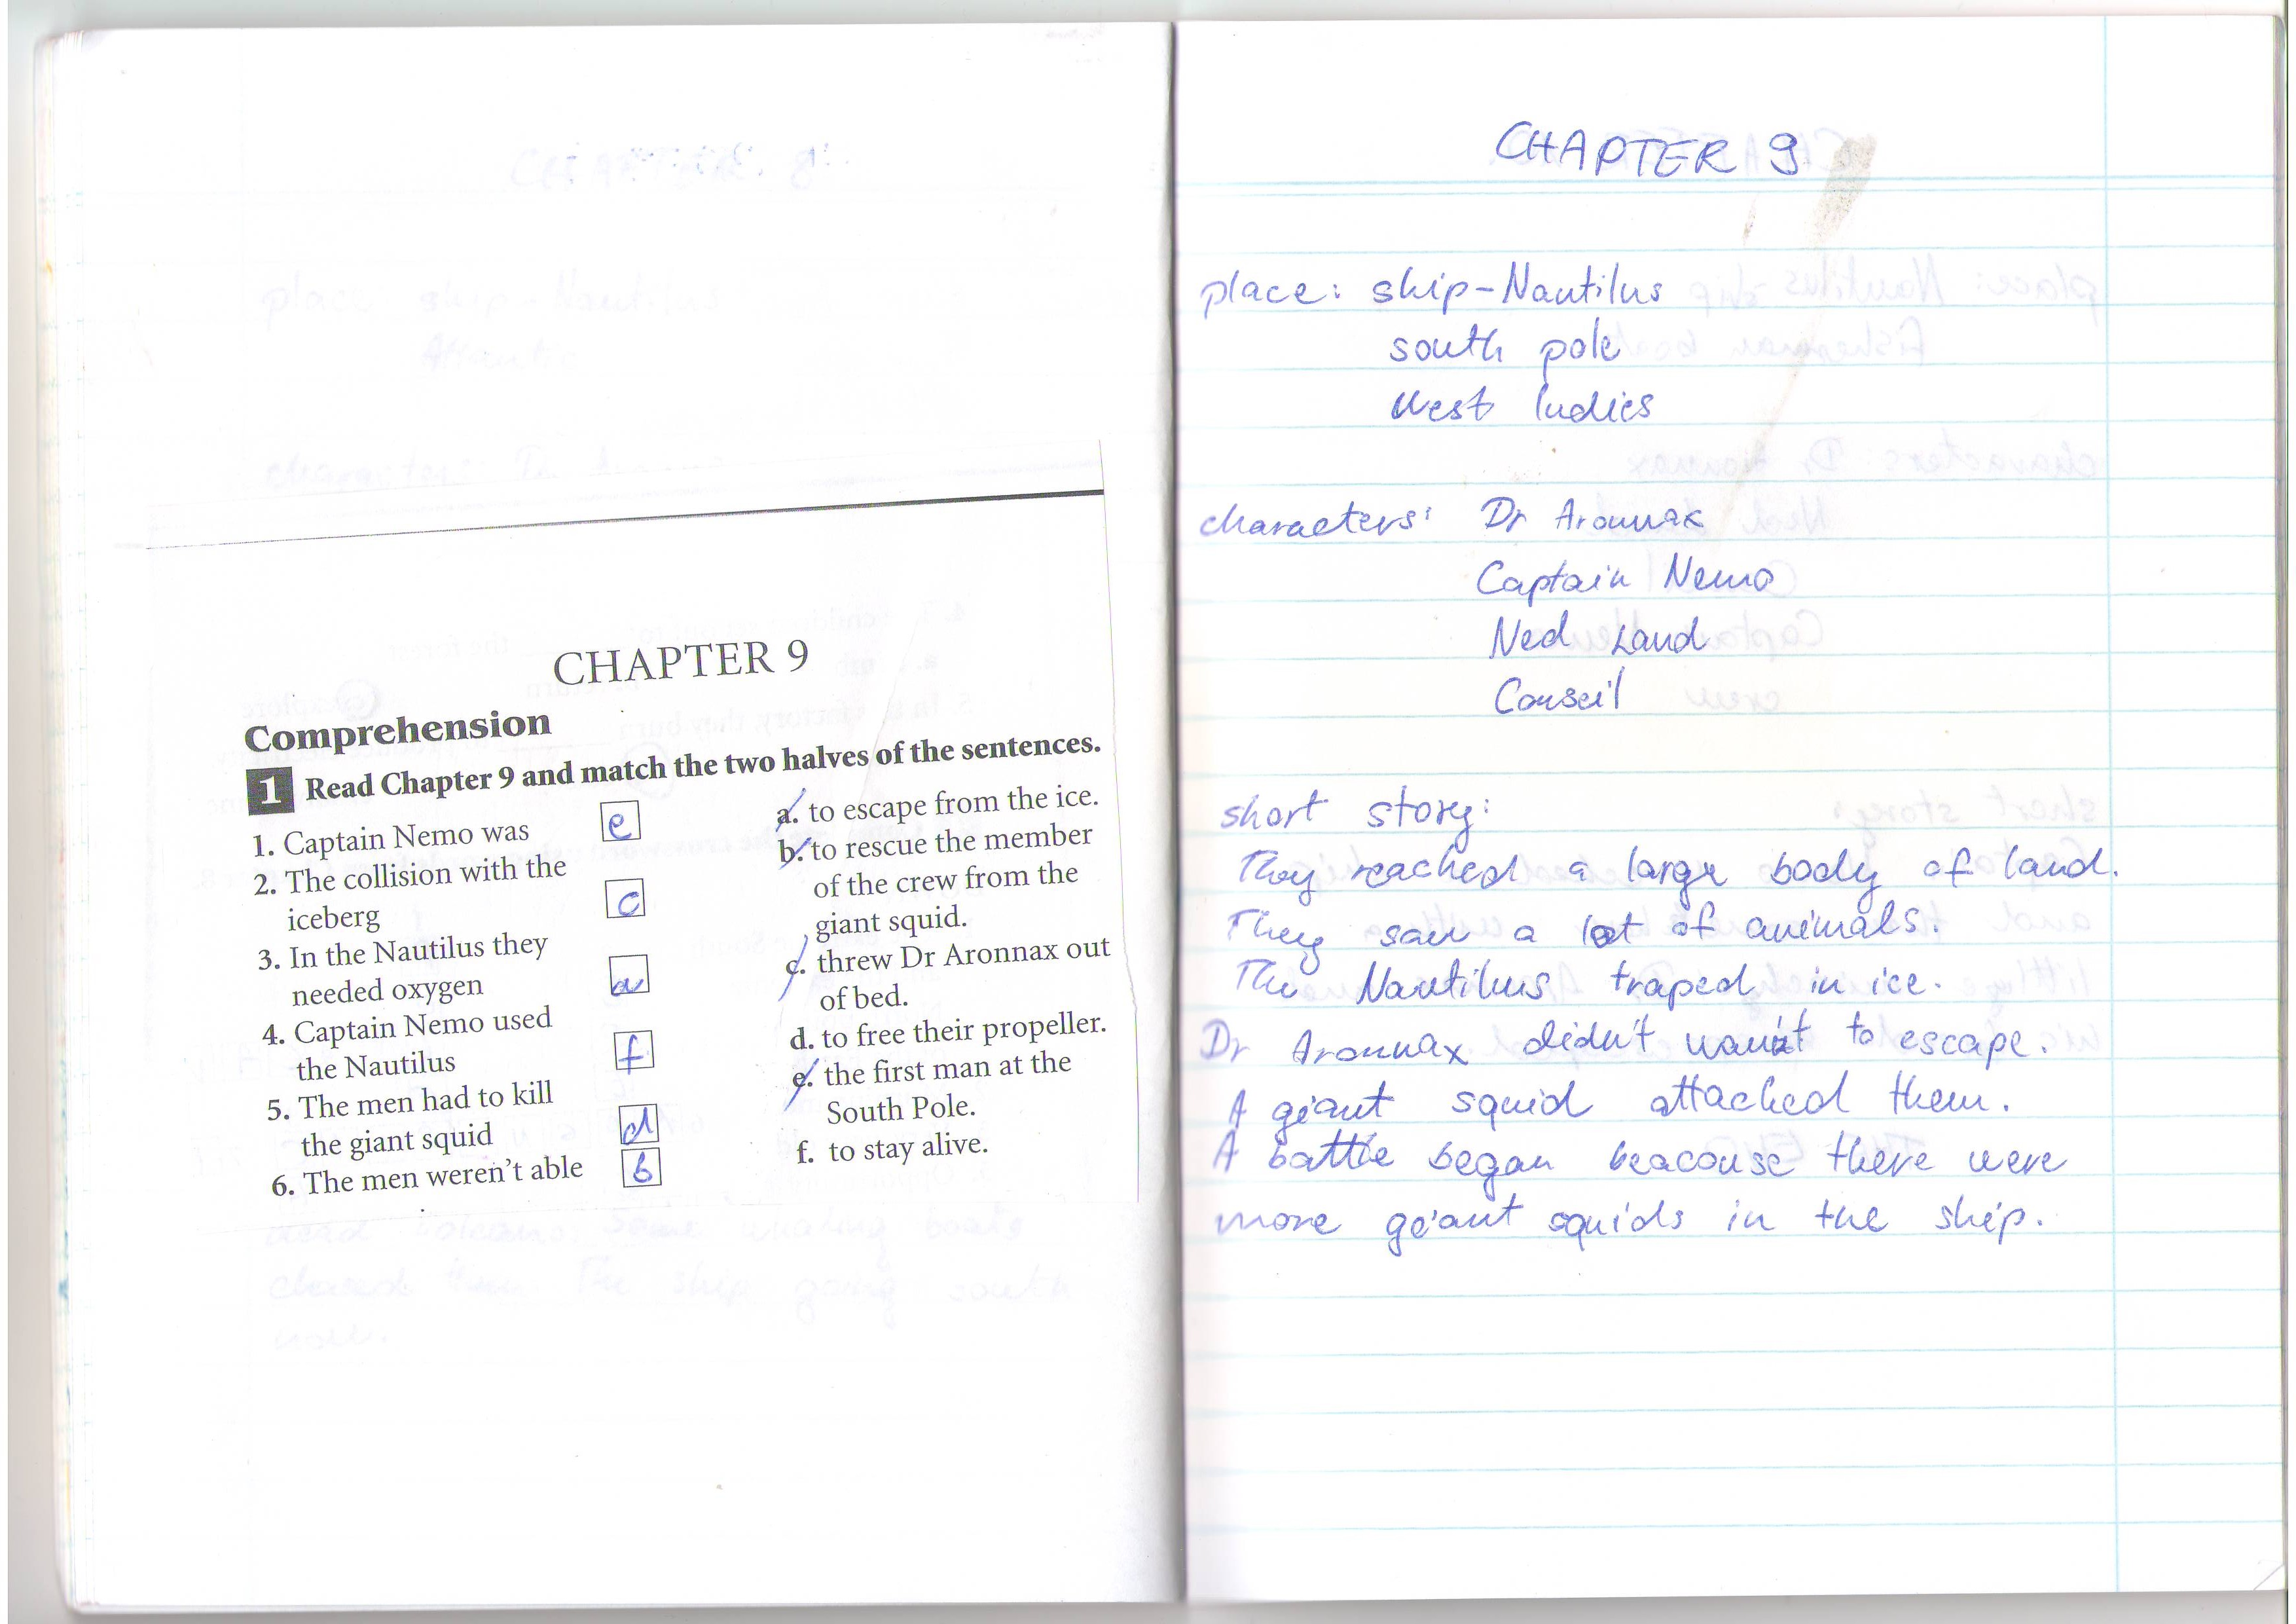 CHAPTER 9
Comprehension
1 Read Chapter 9 and match the two halves of the sentences.
1. Captain Nemo was e
2. The collision with the
iceberg c
3. In the Nautilus they
needed oxygen a
4. Captain Nemo used
the Nautilus f
5. The men had to kill
the giant squid d
6. The men weren't able b
a. to escape from the ice.
b. to rescue the member
of the crew from the
giant squid.
c. threw Dr Aronnax out
of bed.
d. to free their propeller.
e. the first man at the
South Pole.
f. to stay alive.
CHAPTER 9
place: ship-Nautilus
south pole
West Indies
characters: Dr Aronnax
Captain Nemo
Ned Land
Conseil
short story:
They reached a large body of land.
They saw a lot of animals.
The Nautilus traped in ice.
Dr Aronnax didn't want to escape.
A geant squid attached them.
A battle began beacouse there were
more geant squids in the ship.